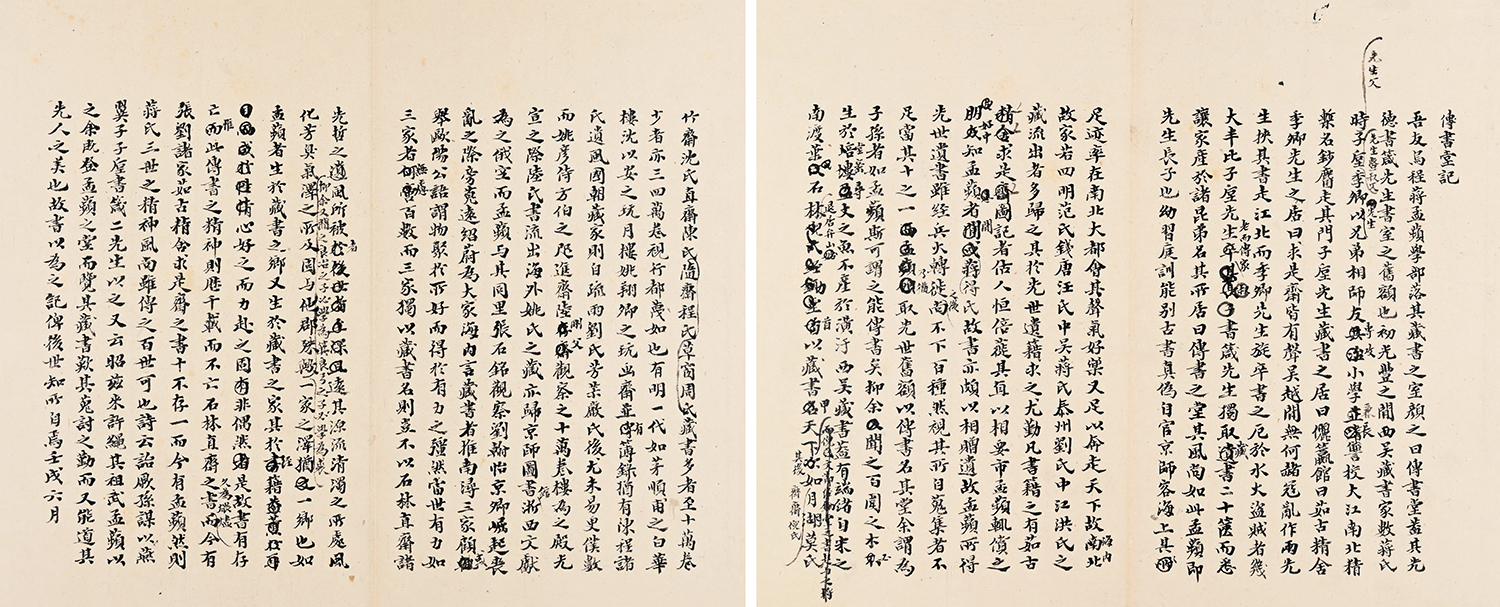 傳書堂記
吾友烏程蔣孟蘋學部落其藏書之室顏之曰傳書堂蓋其先
德書箴先生書室之舊額也初光豐之間西吳藏書家數蔣氏
先生父
時子垕季卿以兄弟相師友專攻小學兼長校大江南北精
槧名鈔麕走其門子垕先生藏書之居曰儷籝館曰茹古精舍
季卿先生之居曰求是齋皆有聲吳越間無何赭寇亂作兩先
生挾其書走江北而季卿先生旋卒書之厄於水火盜賊者幾
大半比子垕先生老而傳家書箴先生獨取藏書二十篋而悉
讓家產於諸昆弟名其所居曰傳書之堂其風尚如此孟蘋即
先生長子也幼習庭訓能別古書真偽自官京師客海上其
足迹率在南北大都會其聲氣好樂又足以奔走天下故海內
故家若四明范氏錢唐汪氏中吳蔣氏泰州劉氏中江洪氏之
藏流出者多歸之其於先世遺籍求之尤勤凡書籍之有茹古
精舍求是齋圖記者估人恒倍蓰其直以相要市孟蘋輒償之
明知孟蘋者閒得蔣氏故書亦頗以相贈遺故孟蘋所得
先世遺書雖經兵火轉徙尚不下百種然視其所自蒐集者不
足當其十之一孟蘋不獲取先世舊額以傳書名其堂余謂為
子孫者如孟蘋斯可謂之能傳書矣抑余聞之百圍之木不
生於堂尋之魚不產於潢汙西吳藏書蓋有端緒自宋之
南渡葉石林退居弁山以藏書名天下
其後月湖莫氏齊齋倪氏
竹齋沈氏直齋陳氏隨齋程氏草窗周氏藏書多者至十萬卷
少者亦三四萬卷視行都蔑如也有明一代如茅順甫之白華
樓沈以安之玩月樓姚翔卿之玩畫齋並有簿錄猶有沈程諸
氏遺風國朝藏家則自疏雨劉氏芳茮嚴氏後尤未易更僕數
而姚彥侍方伯之咫進齋陸剛父觀察之十萬卷樓為之殿光
宣之際陸氏書流出海外姚氏之藏亦歸京師圖書館浙西文獻
為之俄空而孟蘋与其同里張石銘觀察劉翰怡京卿崛起喪
亂之際旁蒐遠紹蔚為大家海內言藏書者推南潯三家顧或
舉歐陽公語謂物聚於所好而得於有力之彊然當世有力如
三家者何啻百數而三家獨以藏書名則豈不以石林直齋諸
先哲之遺風所被者遠其源流清濁之所處風
化芳臭氣澤之所及固与他郡殊歟一家之澤猶一鄉也如
抑余又聞之良冶之子必學為裘良弓之子必學為箕
孟蘋者生於藏書之鄉又生於藏書之家其於書籍
心好之而力赴之固有非偶然者是故書有存
亡而此傳書之精神則雖千載而不亡石林直齋之書久為煨燼而今有
張劉諸家茹古精舍求是齋之書十不存一而今有孟蘋然則
蔣氏三世之精神風尚雖傳之百世可也詩云詒厥孫謀以燕
翼子子垕書箴二先生以之又云昭茲來許繩其祖武孟蘋以
之余既登孟蘋之堂而覽其藏書歎其蒐討之勤而又能道其
先人之美也故書以為之記俾後世知所自焉壬戌六月